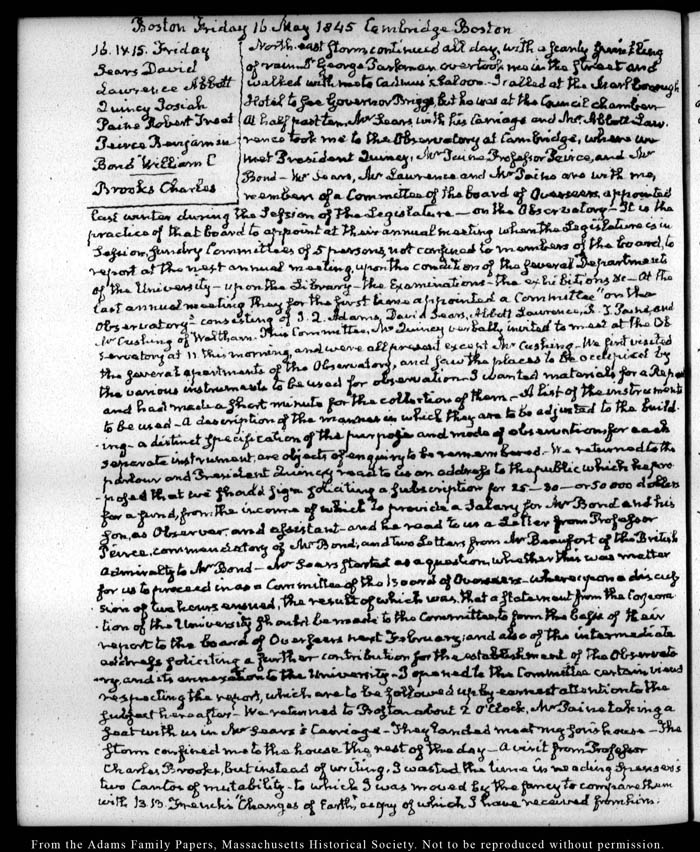 Boston Friday 16 May 1845 Cambridge Boston
16. IV:5. Friday
Sears David
Lawrence Abbott
Quincy Josiah
Paine Robert Treat
Peirce Benjamin
Bond William C
Brooks Charles
North-east storm continued all day, with a scanty sprinkling
of rain. Dr George Parkman overtook me in the street and
walked with me to Cadmus's saloon. I called at the Marlborough
Hotel to see Governor Briggs, but he was at the Council chamber
At half past ten, Mr Sears with his Carriage and Mr Abbott Law-
rence took me to the Observatory at Cambridge, where we
met President Quincy, Mr Paine Professor Peirce, and Mr
Bond - Mr Sears, Mr Lawrence and Mr Paine are with me,
members of a Committee of the board of Overseers appointed
last winter during the Session of the Legislature - on the Observatory - It is the
practice of that board to appoint at their annual meeting when the Legislature is in
Session, sundry Committees of 5 persons, not confined to members of the board, to
report at the next annual meeting, upon the condition of the several Departments
of the University - upon the Library - the Examinations - the exhibitions &c - At the
last annual meeting they for the first time appointed a Committee "on the
Observatory" consisting of J. Q. Adams, David Sears, Abbott Lawrence, R. T. Paine, and
Mr Cushing of Waltham. This Committee, Mr Quincy verbally invited to meet at the Ob
servatory at 11 this morning, and were all present except Mr Cushing - We first visited
the several apartments of the Observatory, and saw the places to be occupied by
the various instruments to be used for observation. I wanted materials for a Report
and had made a short minute for the collection of them. - A list of the instruments
to be used - A description of the manner in which they are to be adjusted to the build-
ing - a distinct specification of the purpose and mode of observations for each
separate instrument, are objects of enquiry to be remembered. - We returned to the
parlour and President Quincy read to us an address to the public which he pro-
posed that we should sign soliciting a subscription for 25 - 30 - or 50 000 dollars
for a fund, from the income of which to provide a Salary for Mr Bond and his
Son, as Observer, and assistant - and he read to us a Letter from Professor
Peirce, commendatory of Mr Bond, and two Letters from Mr Beaufort of the British
Admiralty to Mr Bond - Mr Sears started as a question, whether this was matter
for us to proceed in as a Committee of the Board of Overseers - whereupon a discus
sion of two hours ensued, the result of which was that a statement from the Corpora-
tion of the University should be made to the Committee to form the basis of their
report to the board of Overseers next February; and also of the intermediate
address soliciting a further contribution for the establishment of the Observato
ry, and its annexation to the University - I opened to the Committee certain views
respecting the report, which are to be followed up by earnest attention to the
subject hereafter - We returned to Boston about 2 O'Clock, Mr Paine taking a
seat with us in Mr Sears's Carriage - They landed me at my son's house - The
storm confined me to the house the rest of the day - A visit from Professor
Charles Brooks, but instead of writing, I wasted the time in reading Spenser's
two Cantos of mutability - to which I was moved by the fancy to compare them
with B. B. French's "Changes of Earth," a copy of which I have received from him.
From the Adams Family Papers, Massachusetts Historical Society. Not to be reproduced without permission.